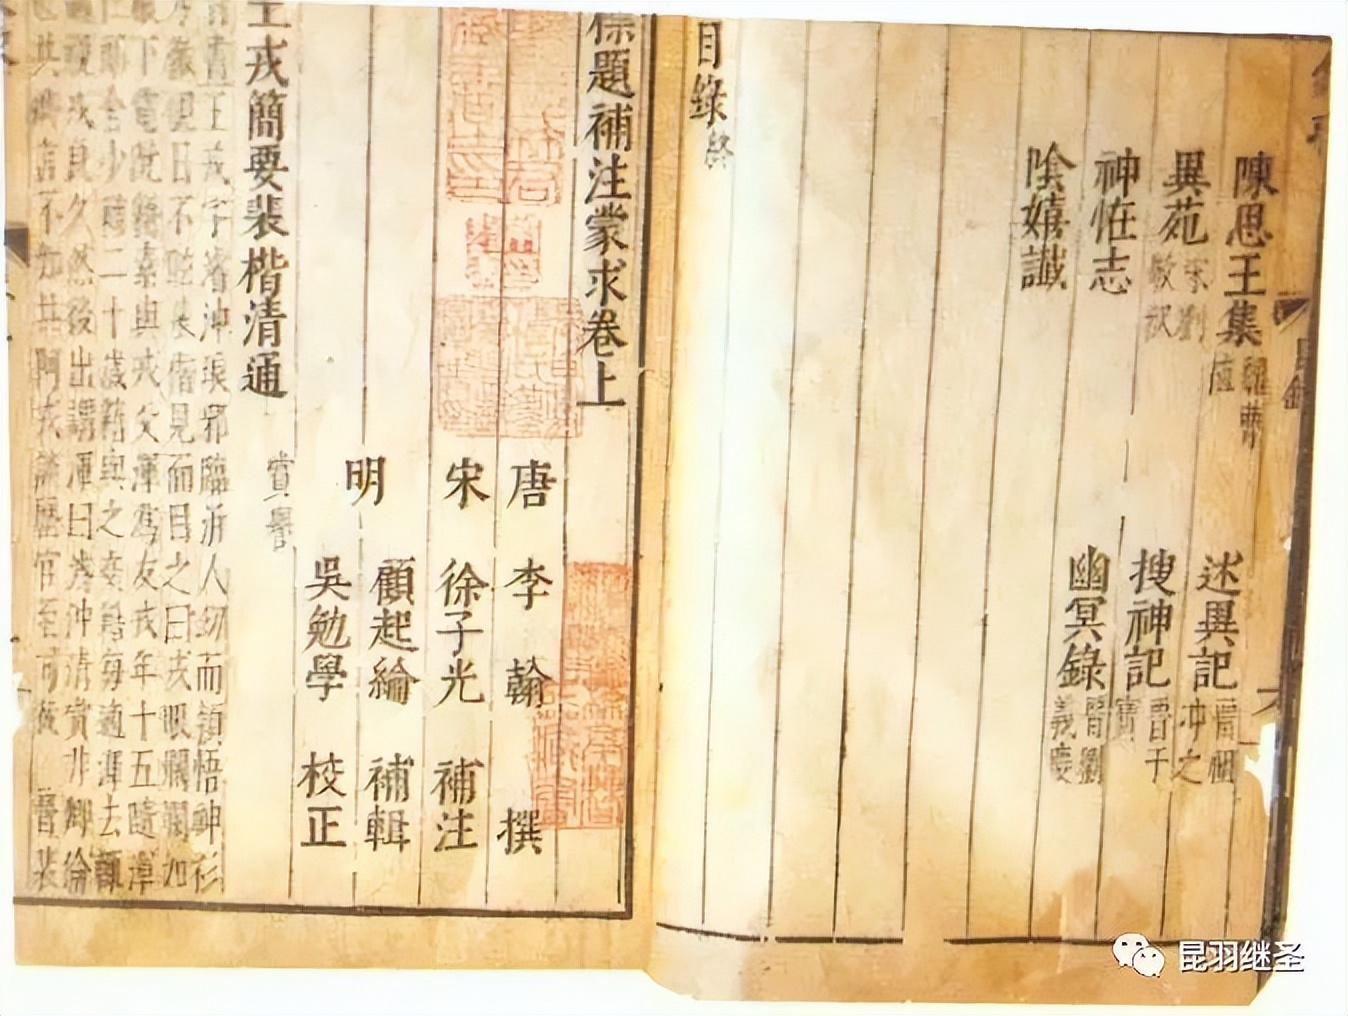 陳思王集 魏曹植
述異記 晉祖冲之
異苑 宋劉敬叔
搜神記 晉干寶
神恠志
幽冥錄 晉劉義慶
陰嬉讖
目錄終
標題補注蒙求卷上
唐 李翰 撰
宋 徐子光 補注
明 顧起綸 補輯
吳勉學 校正
王戎簡要裴楷清通 賞譽
晉書王戎字濬沖琅邪臨沂人幼而頴悟神彩
視日不眩裴楷見而目之曰戎眼爛爛如
下電阮籍素與戎父渾爲友戎年十五隨渾
郎舍少籍二十歲籍與之交籍每適渾去輒
視戎良久然後出謂渾曰濬沖清賞非卿倫
也共卿言不如共阿戎談歷官至司徒 晉裴
昆羽继圣